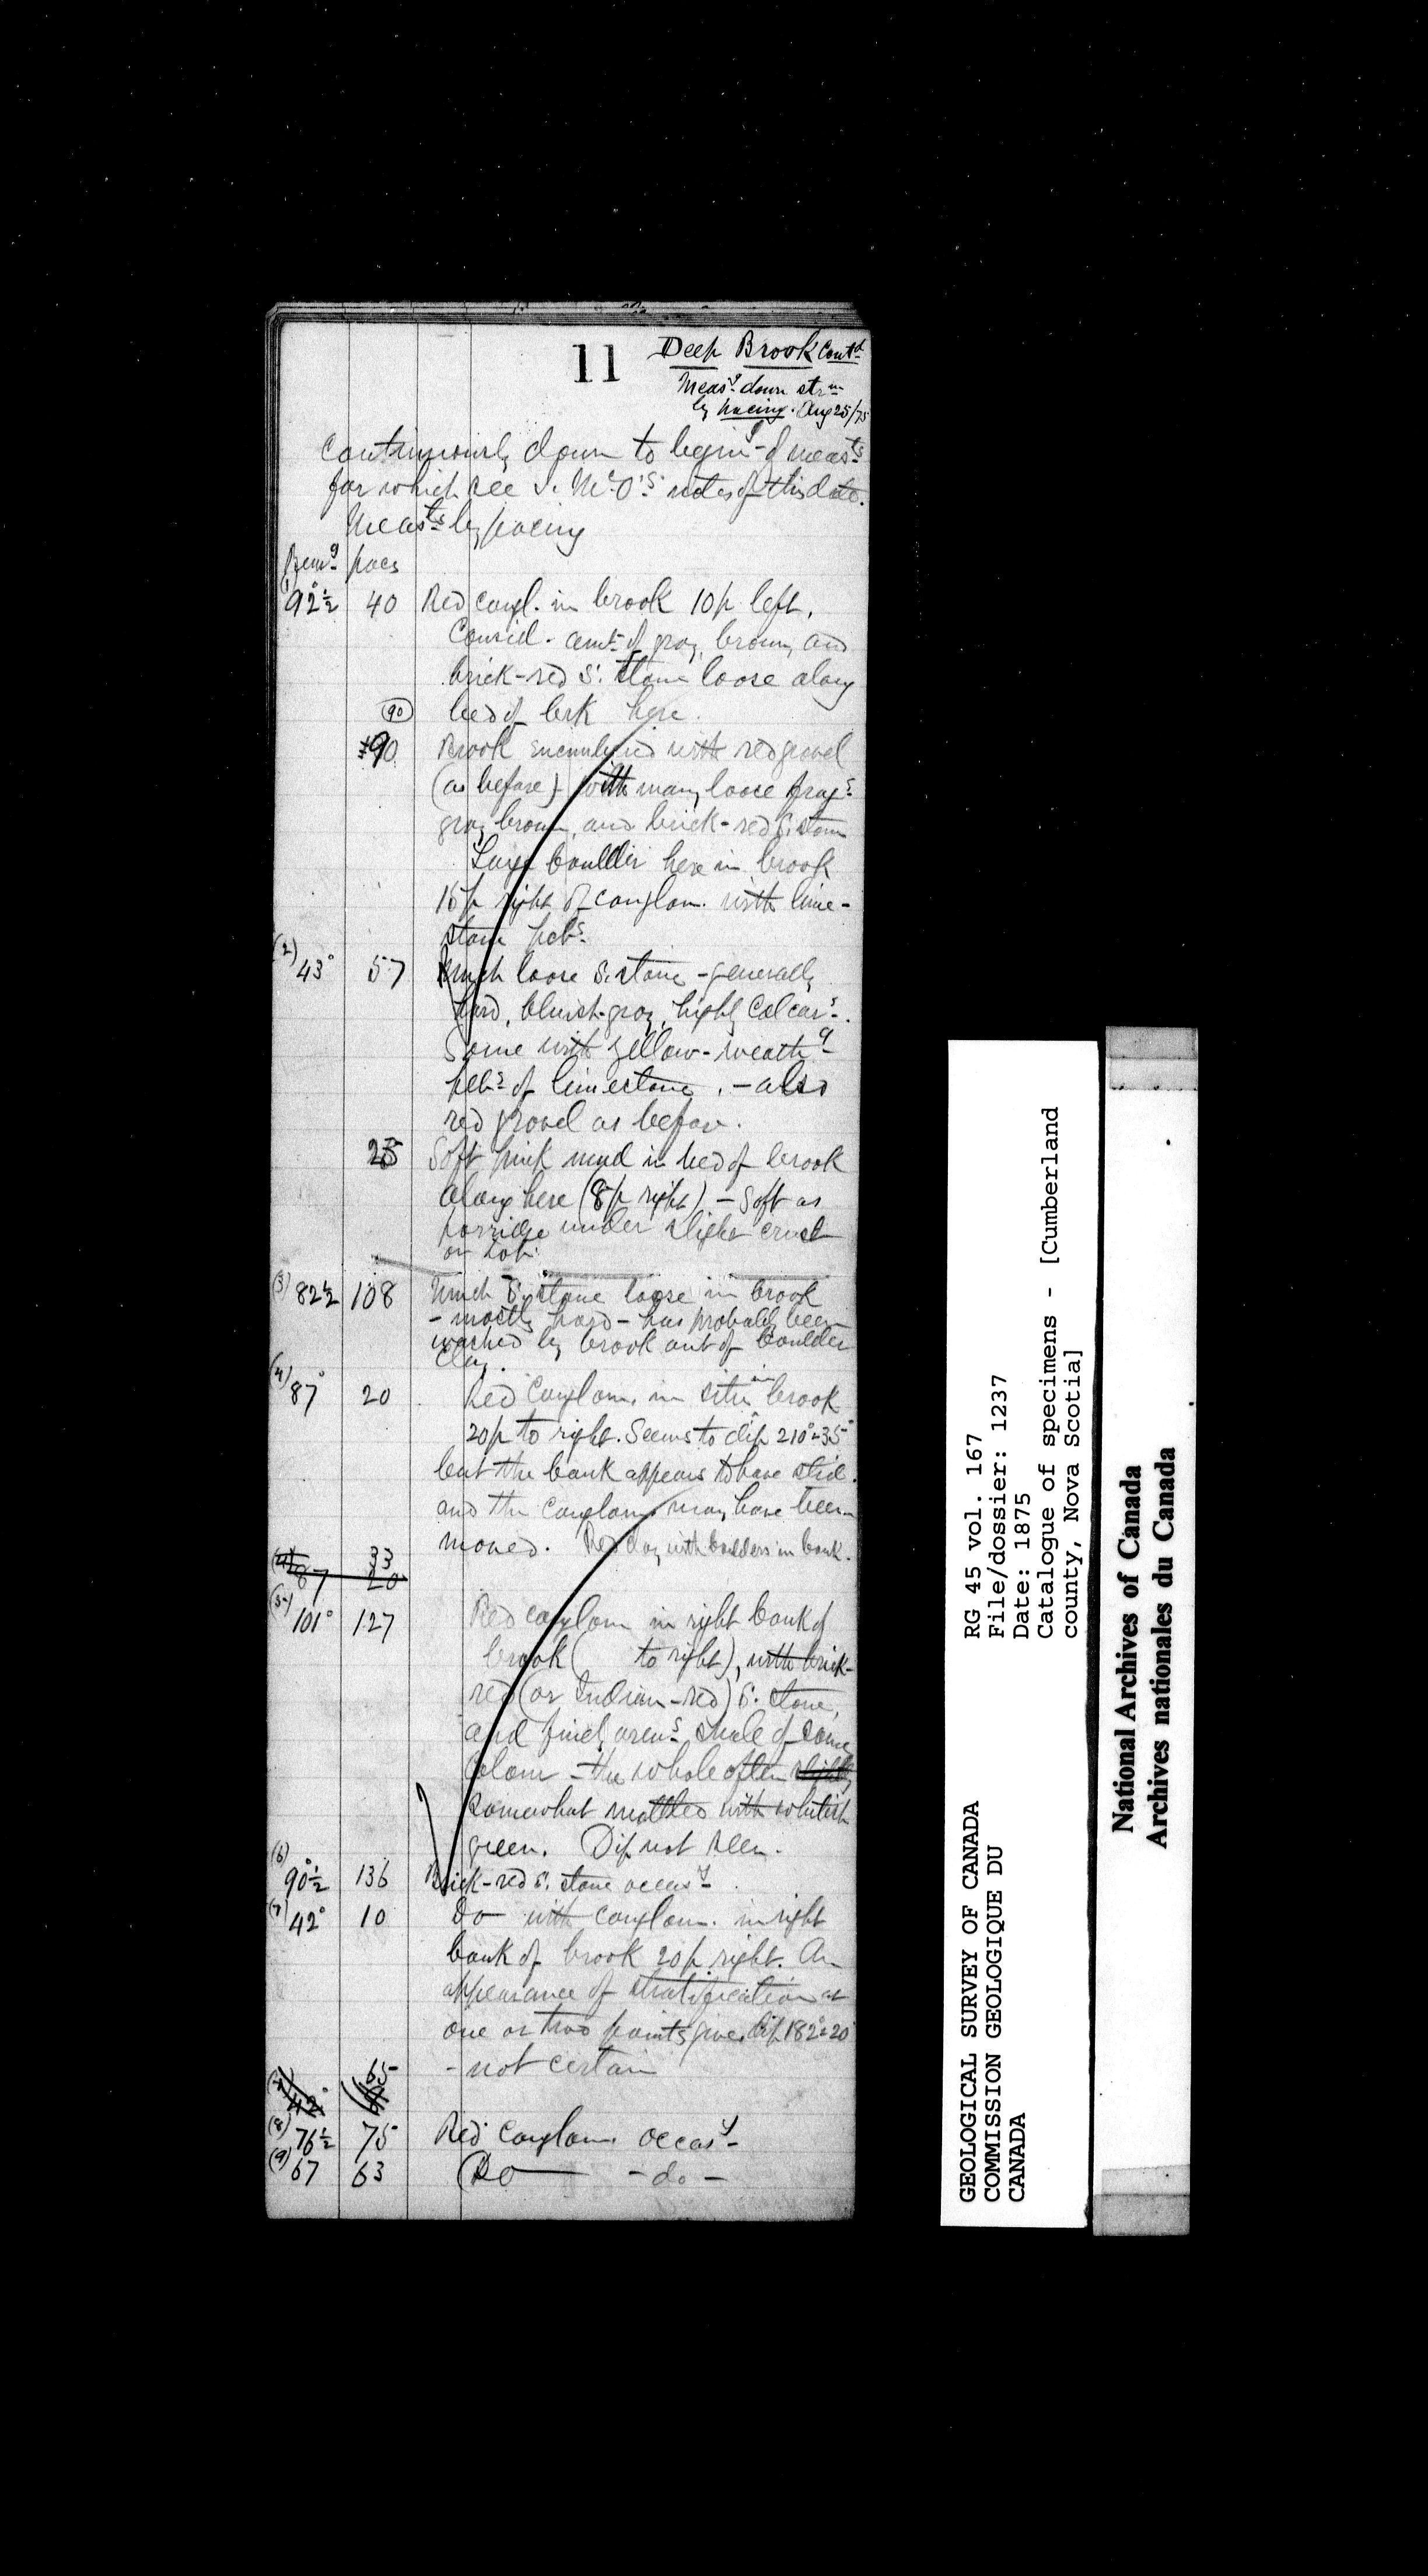 11
Deep Brook Contd
Measg down strm
by pacing. Aug 25/75
continuously down to beging of meats
for which see S. McO's notes of this date.
Meats by pacing
Bearg paces
(1) 92°½ 40 Red congl. in brook 10p left.
Consid. amt of gray, brown, and
brick-red S. stone loose along
(90) bed of brk here.
90 Brook encumbered with red gravel
(as before) with many loose frags
gray, brown, and brick-red S. stone
Large boulder here in brook
15p right of conglom. with lime-
stone pebs.
(2) 43° 57 Much loose S. stone - generally
hard, bluish-gray, highly calcars.
Some with yellow-weathg
pebs of limestone. - also
red gravel as before.
25 Soft pink mud in bed of brook
along here (8p right) - Soft as
porridge under slight crust
on top.
(3) 82½ 108 Much S. stone loose in brook
- mostly hard - has probably been
washed by brook out of boulder
clay.
(4) 87° 20 Red conglom. in situ in brook
20p to right. Seems to dip 210°-35°
but the bank appears to have slid.
and the conglom. may have been
moved. Red clay with boulders in bank.
33
(4) 87 20
(5) 101° 127 Red conglom in right bank of
brook ( to right), with brick-
red (or Indian-red) S. stone,
and finely arens shale of same
colour - the whole often slightly
somewhat mottled with whitish
green. Dip not seen.
(6) 90°½ 136 Brick-red S. stone occasy
(7) 42° 10 Do with conglom. in right
bank of brook 20p right. An
appearance of stratification at
one or two points gives dip 182°-20°
65 - not certain
(7) 42°
(8) 76½ 75 Red conglom. occasy
(9) 67 63 Do - do -
GEOLOGICAL SURVEY OF CANADA
COMMISSION GEOLOGIQUE DU
CANADA
RG 45 vol. 167
File/dossier: 1237
Date: 1875
Catalogue of specimens - [Cumberland
county, Nova Scotia]
National Archives of Canada
Archives nationales du Canada